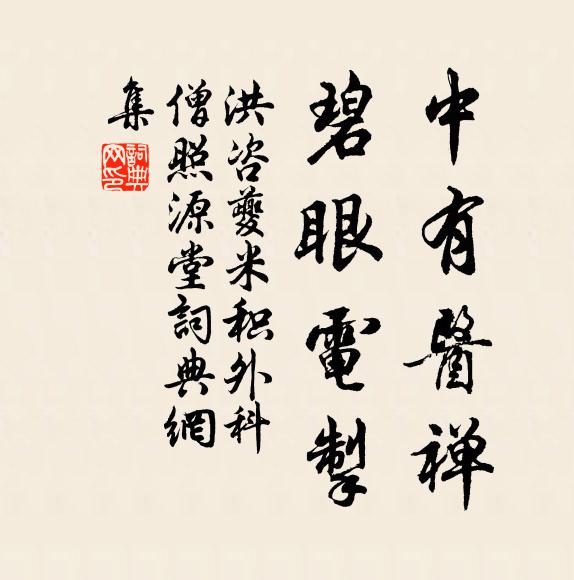 中有醫禪
碧眼電掣
洪咨夔米积外科
僧照源堂詞典網
集
詞典網印